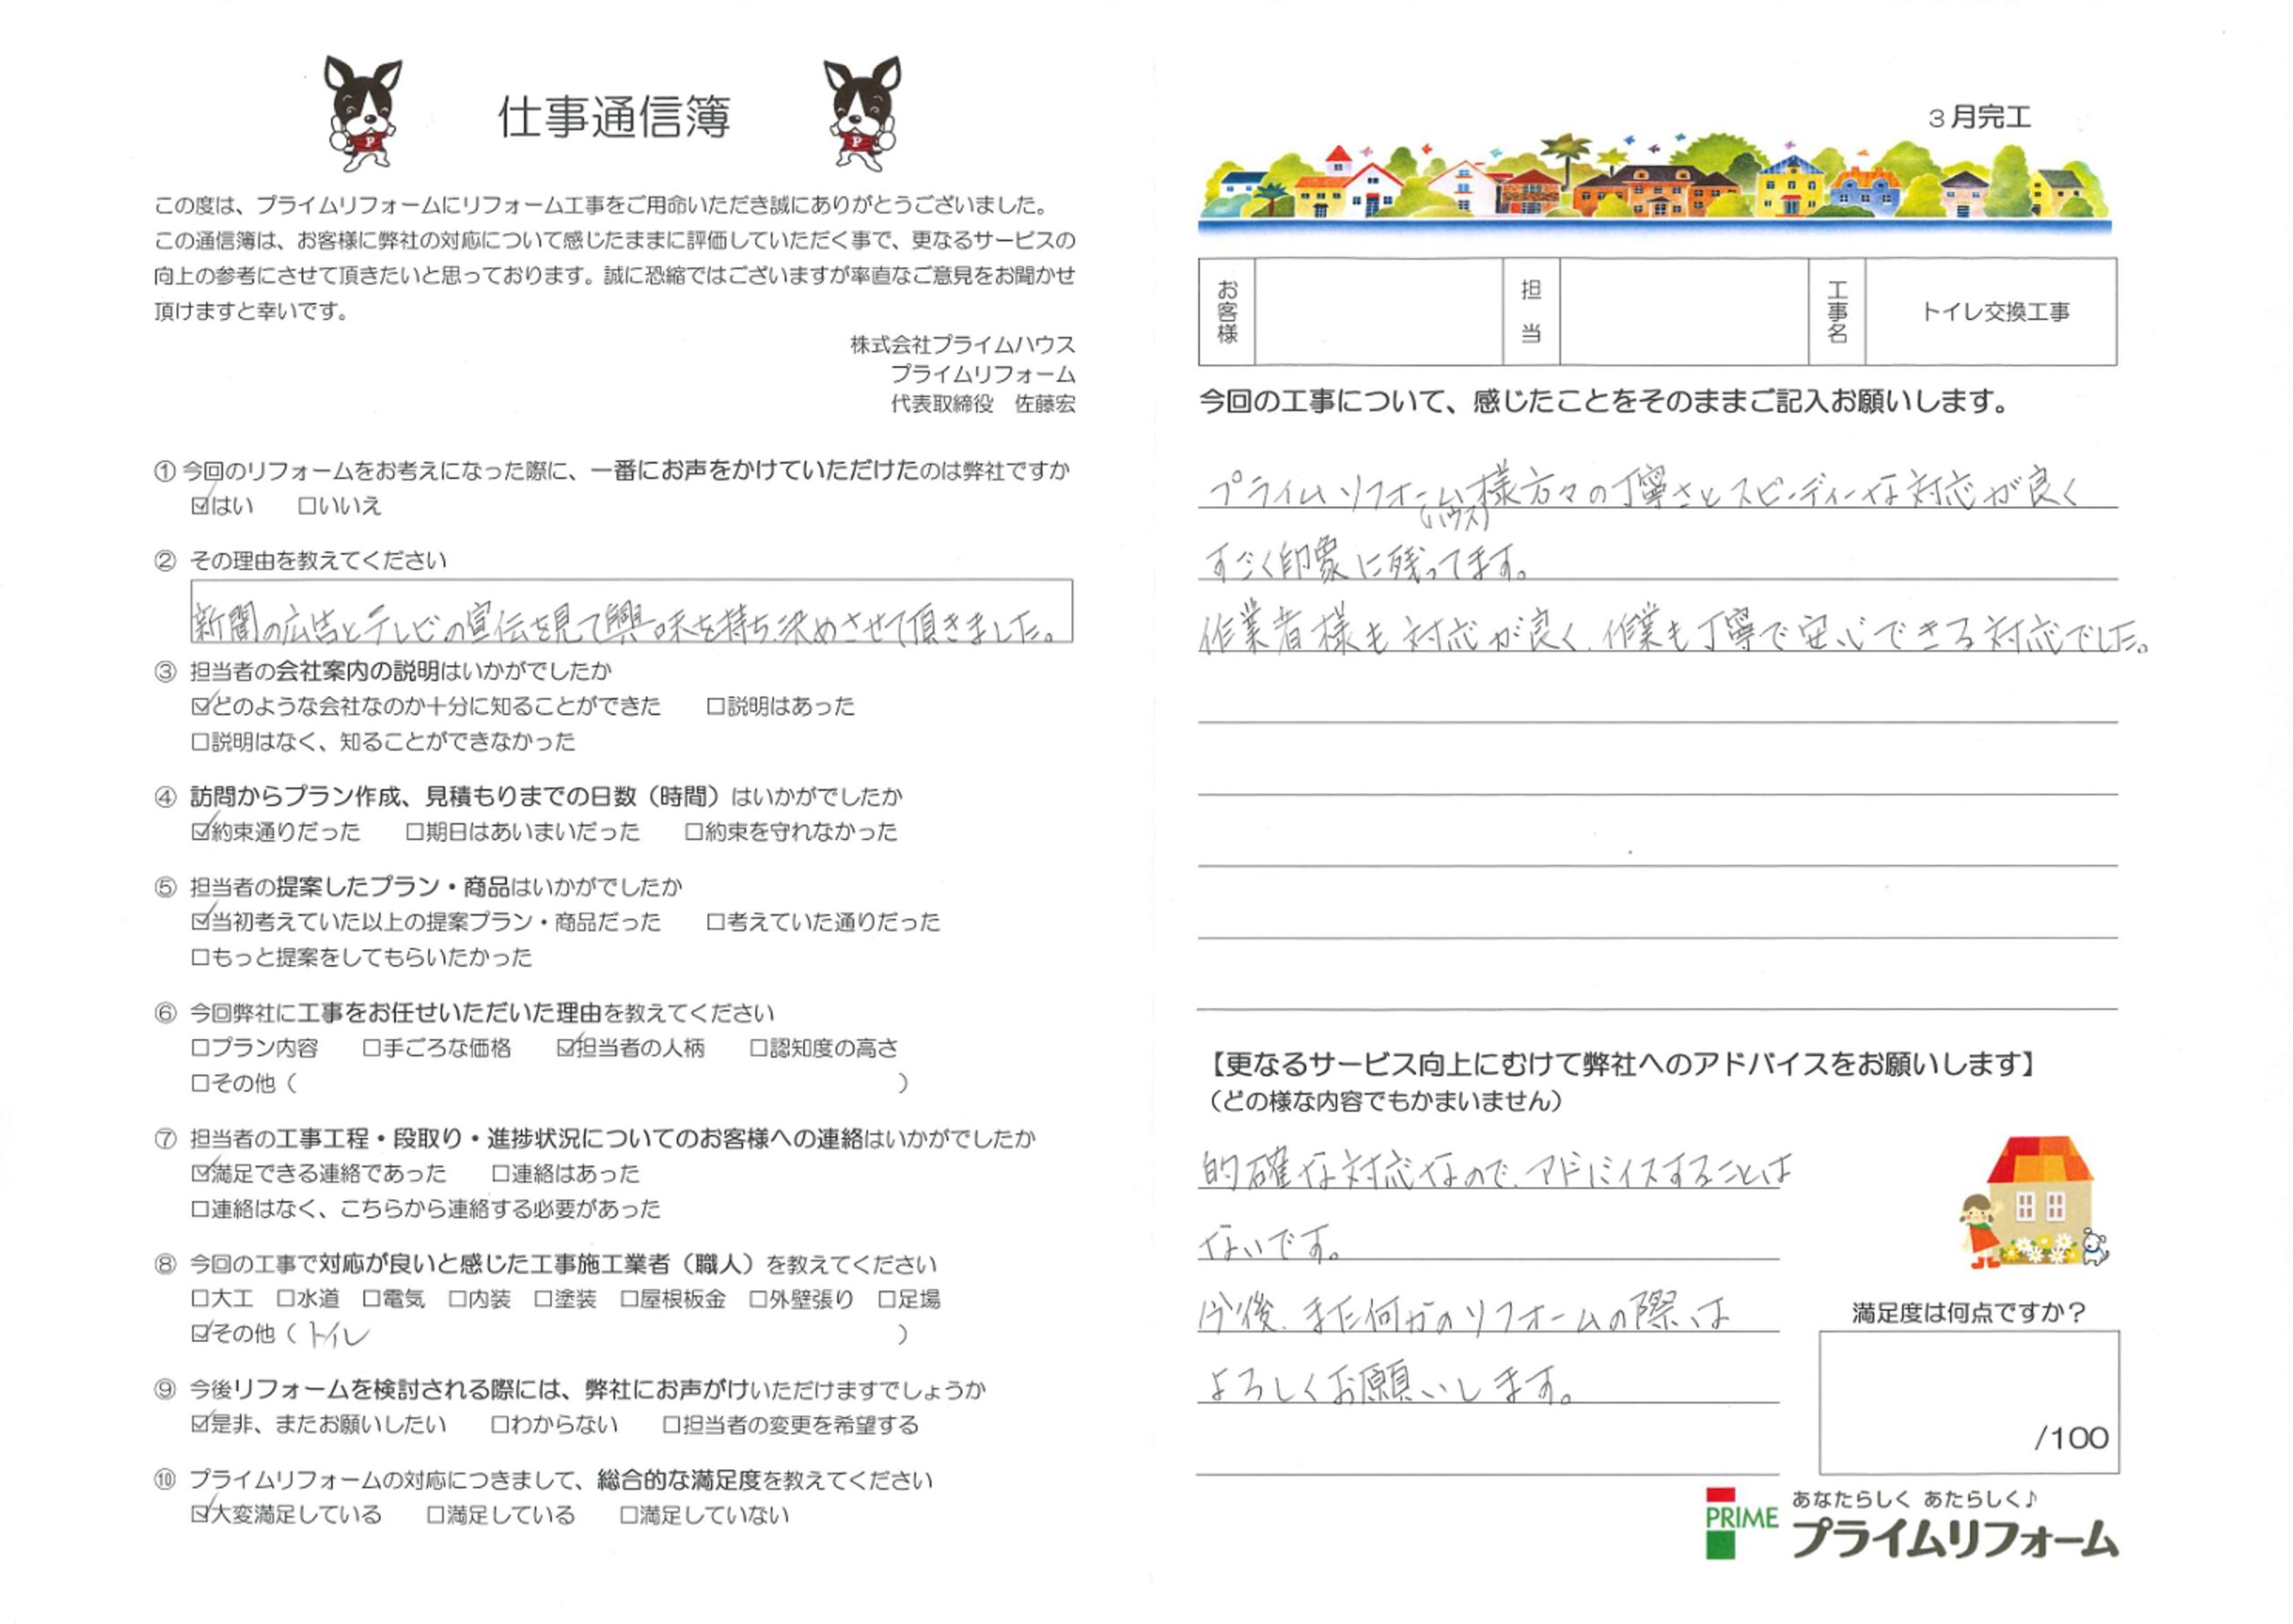 仕事通信簿
この度は、プライムリフォームにリフォーム工事をご用命いただき誠にありがとうございました。
この通信簿は、お客様に弊社の対応について感じたままに評価していただく事で、更なるサービスの
向上の参考にさせて頂きたいと思っております。誠に恐縮ではございますが率直なご意見をお聞かせ
頂けますと幸いです。
株式会社プライムハウス
プライムリフォーム
代表取締役　佐藤宏
① 今回のリフォームをお考えになった際に、一番にお声をかけていただけたのは弊社ですか
☑はい　□いいえ
② その理由を教えてください
新聞の広告とテレビの宣伝を見て興味を持ち決めさせて頂きました。
③ 担当者の会社案内の説明はいかがでしたか
☑どのような会社なのか十分に知ることができた　□説明はあった
□説明はなく、知ることができなかった
④ 訪問からプラン作成、見積もりまでの日数（時間）はいかがでしたか
☑約束通りだった　□期日はあいまいだった　□約束を守れなかった
⑤ 担当者の提案したプラン・商品はいかがでしたか
☑当初考えていた以上の提案プラン・商品だった　□考えていた通りだった
□もっと提案をしてもらいたかった
⑥ 今回弊社に工事をお任せいただいた理由を教えてください
□プラン内容　□手ごろな価格　☑担当者の人柄　□認知度の高さ
□その他（　　　）
⑦ 担当者の工事工程・段取り・進捗状況についてのお客様への連絡はいかがでしたか
☑満足できる連絡であった　□連絡はあった
□連絡はなく、こちらから連絡する必要があった
⑧ 今回の工事で対応が良いと感じた工事施工業者（職人）を教えてください
□大工　□水道　□電気　□内装　□塗装　□屋根板金　□外壁張り　□足場
☑その他（トイレ　　　）
⑨ 今後リフォームを検討される際には、弊社にお声がけいただけますでしょうか
☑是非、またお願いしたい　□わからない　□担当者の変更を希望する
⑩ プライムリフォームの対応につきまして、総合的な満足度を教えてください
☑大変満足している　□満足している　□満足していない
3月完工
お客様　担当　工事名　トイレ交換工事
今回の工事について、感じたことをそのままご記入お願いします。
プライムリフォーム様方々の丁寧さとスピーディーな対応が良く
(ハウス)
すごく印象に残ってます。
作業者様も対応が良く、作業も丁寧で安心できる対応でした。
【更なるサービス向上にむけて弊社へのアドバイスをお願いします】
（どの様な内容でもかまいません）
的確な対応なので、アドバイスすることは
ないです。
今後、また何かのリフォームの際は
よろしくお願いします。
満足度は何点ですか？
/100
PRIME
あなたらしく あたらしく♪
プライムリフォーム
P
P